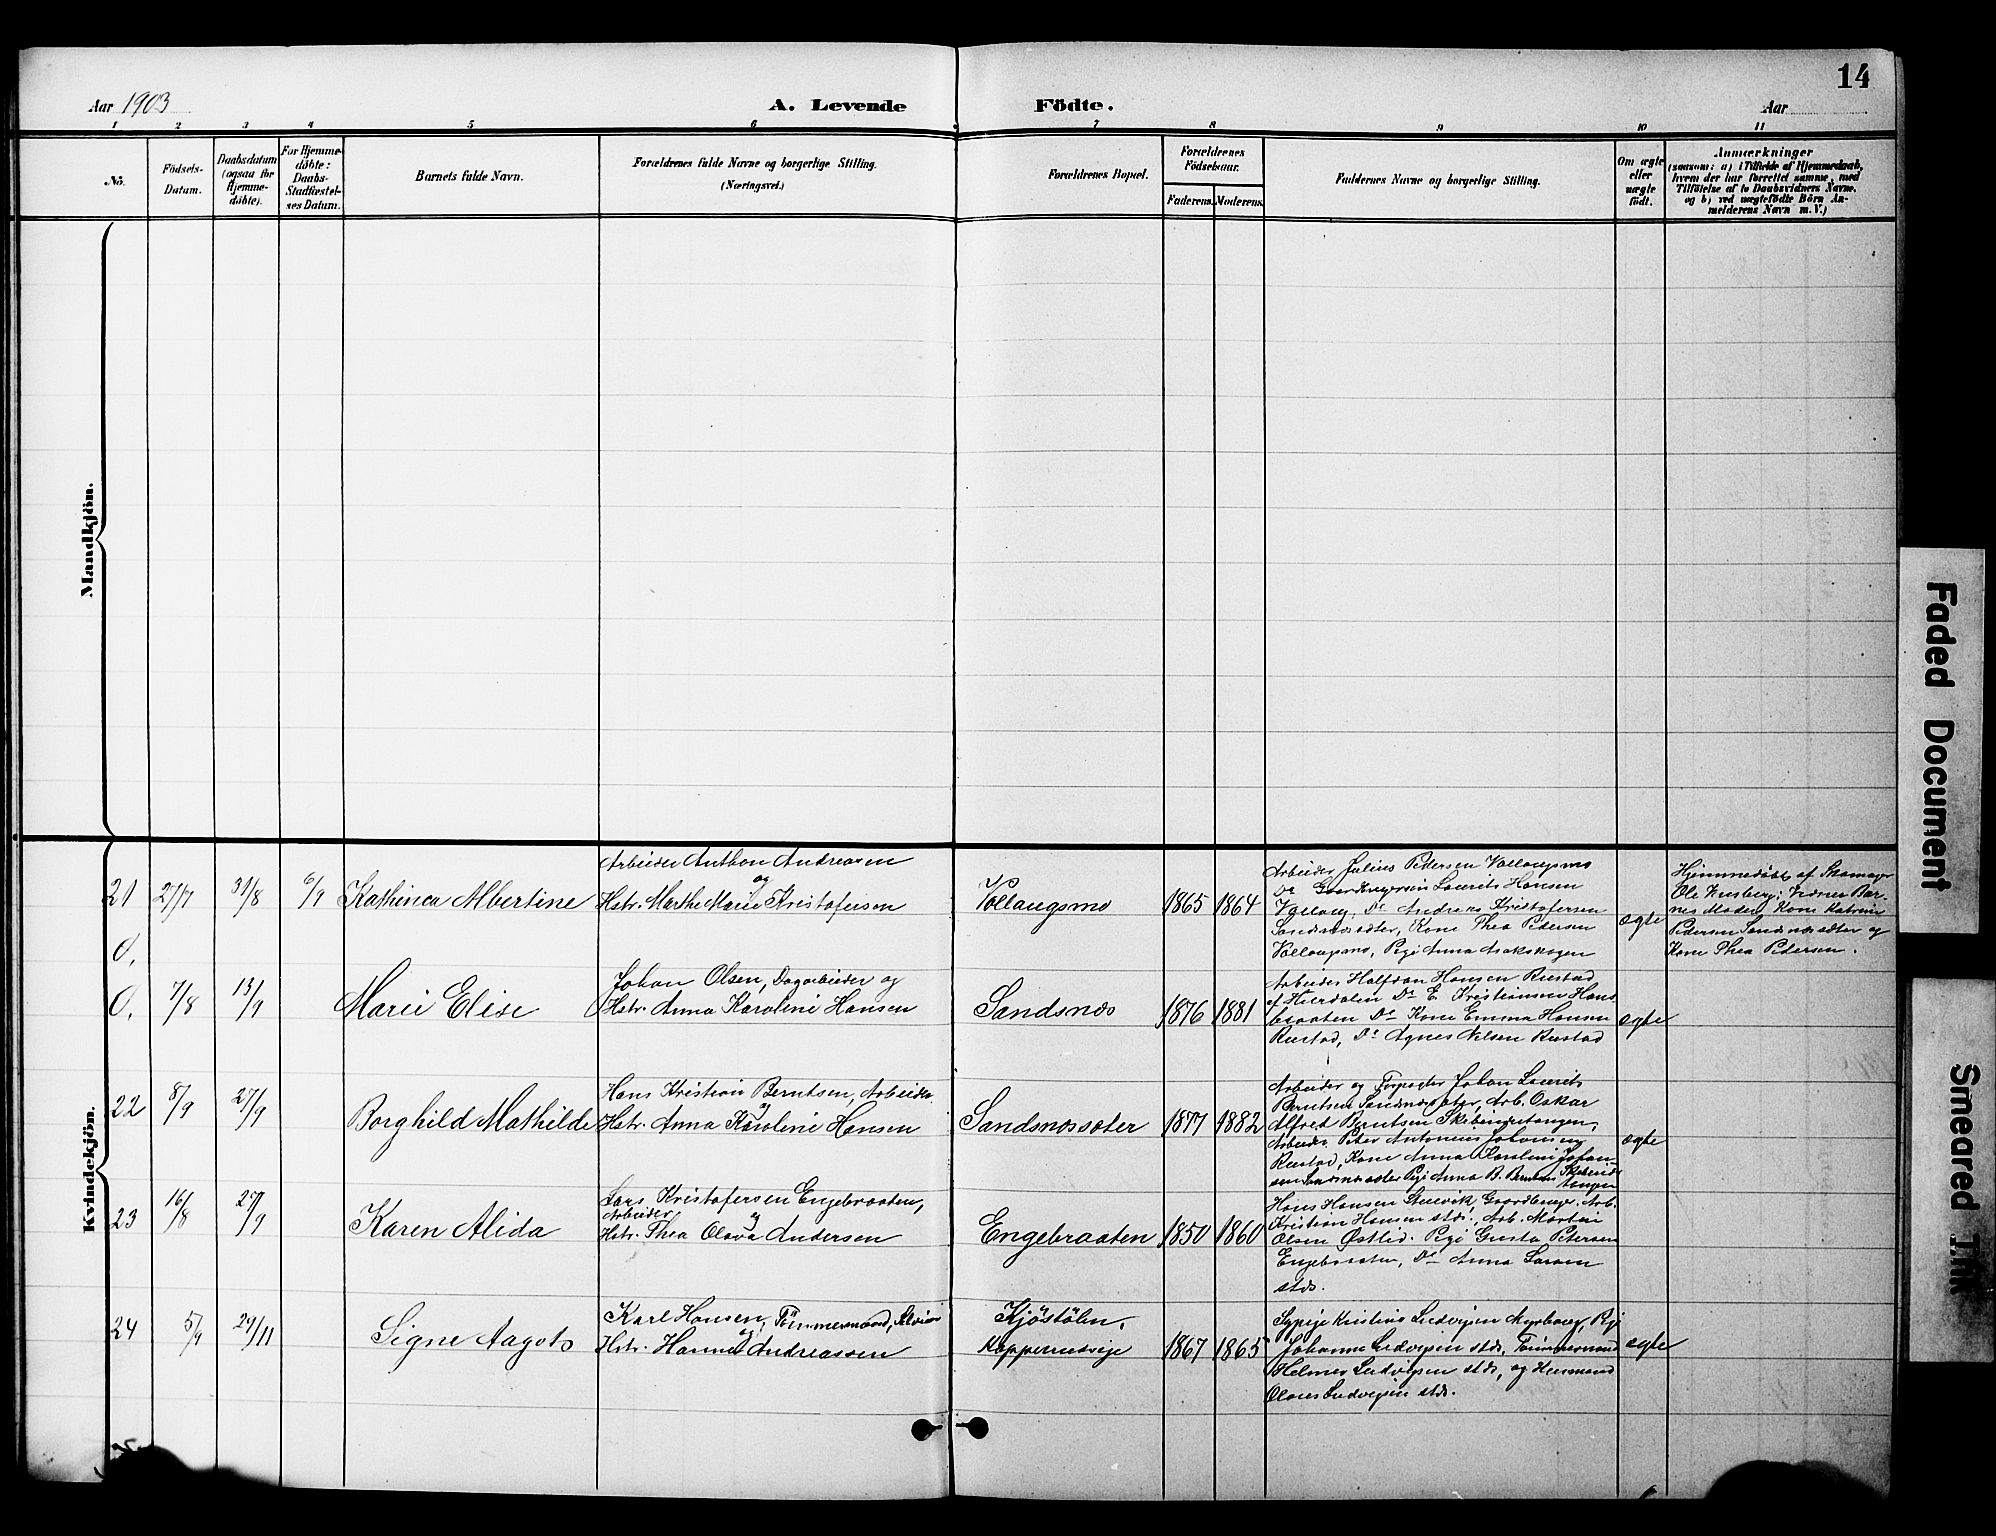 14
Aar 1903
A. Levende
Födte.
Aar
1 2 3 4 5 6 7 8 9 10 11
No.
Födsels-
Datum.
Daabsdatum
(ogsaa for
Hjemme-
döbte).
For Hjemme-
döbte:
Daabs-
Stadfæstel-
ses Datum.
Barnets fulde Navn.
Forældrenes fulde Navne og borgerlige Stilling.
(Næringsvei.)
Forældrenes Bopæl.
Forældrenes
Födselsaar.
Faderens.
Moderens.
Faddernes Navne og borgerlige Stilling.
Om ægte
eller
uægte
födt.
Anmærkninger
(saasom: a) i Tilfælde af Hjemmedaab,
hvem der har forrettet samme, med
Tilföielse af to Daabsvidners Navne,
og b) ved uægtefödte Börn An-
melderens Navn m. V.)
Mandkjön.
Kvindekjön.
21
0.
27/7
31/8
6/9
Kathinca Albertine
Arbeider Anthon Andreasen
og
Hstr. Marthe Marie Kristofersen
Vollaugsmo
1865
1864
Arbeider Julius Pedersen Vollaugsmo
Do Laurits Hansen
Vollaug, Do Andreas Kristofersen
Sandsnæssæter, Kone Thea Pedersen
Vollaugsmo, Pige Anna Aaskskogen
ægte
Hjemmedöbt af Skomager
Ole
nes Moder, Kone Katrine
Pedersen Sandsnæssæter og
Kone Thea Pedersen.
0.
7/8
13/9
Marie Elise
Johan Olsen, Dagarbeider og
Hstr. Anna Karoline Hansen
Sandsnæs
1876
1881
Arbeider Halfdan Hansen Rustad
Do E. Kristiansen Hans-
braaten Do Kone Emma Hansen
Rustad, Do Agnes Nilsen Rustad
ægte
22
8/9
27/9
Borghild Mathilde
Hans Kristian Berntsen, Arbeider
og
Hstr. Anna Karoline Hansen
Sandsnæssæter
1877
1882
Arbeider og Johan Laurits
Berntsen Sandsnæssæter, Arb. Oskar
Alfred Berntsen Skibingertangen,
Arbeider Peter Antonius
Rustad, Kone Anna Karoline Johan-
sen Sandsnæssæter Pige Anna B. Berntsen
tangen
ægte
23
16/8
27/9
Karen Alida
Lars Kristofersen Engebraaten,
Arbeider,
og
Hstr. Thea Olava Andersen
Engebraaten
1850
1860
Hans Hansen Gaardbruger. Arb.
Kristian Hansen stds., Arb. Martin
Olsen Østlid. Pige Gusta Petersen
Engebraaten, Do Anna Larsen
stds.
24
5/9
29/11
Signe Aagots
Karl Hansen, Tömmermand,
og
Hstr. Hanna Andreassen
Kjöstöln,
1867
1865
Sypige Kristine Ludvigsen
Johanne Ludvigsen stds, Tömmermand
Helmer Ludvigsen stds, og Husmand
Olaves Ludvigsen stds.
ægte
Faded Document
Smeared Ink